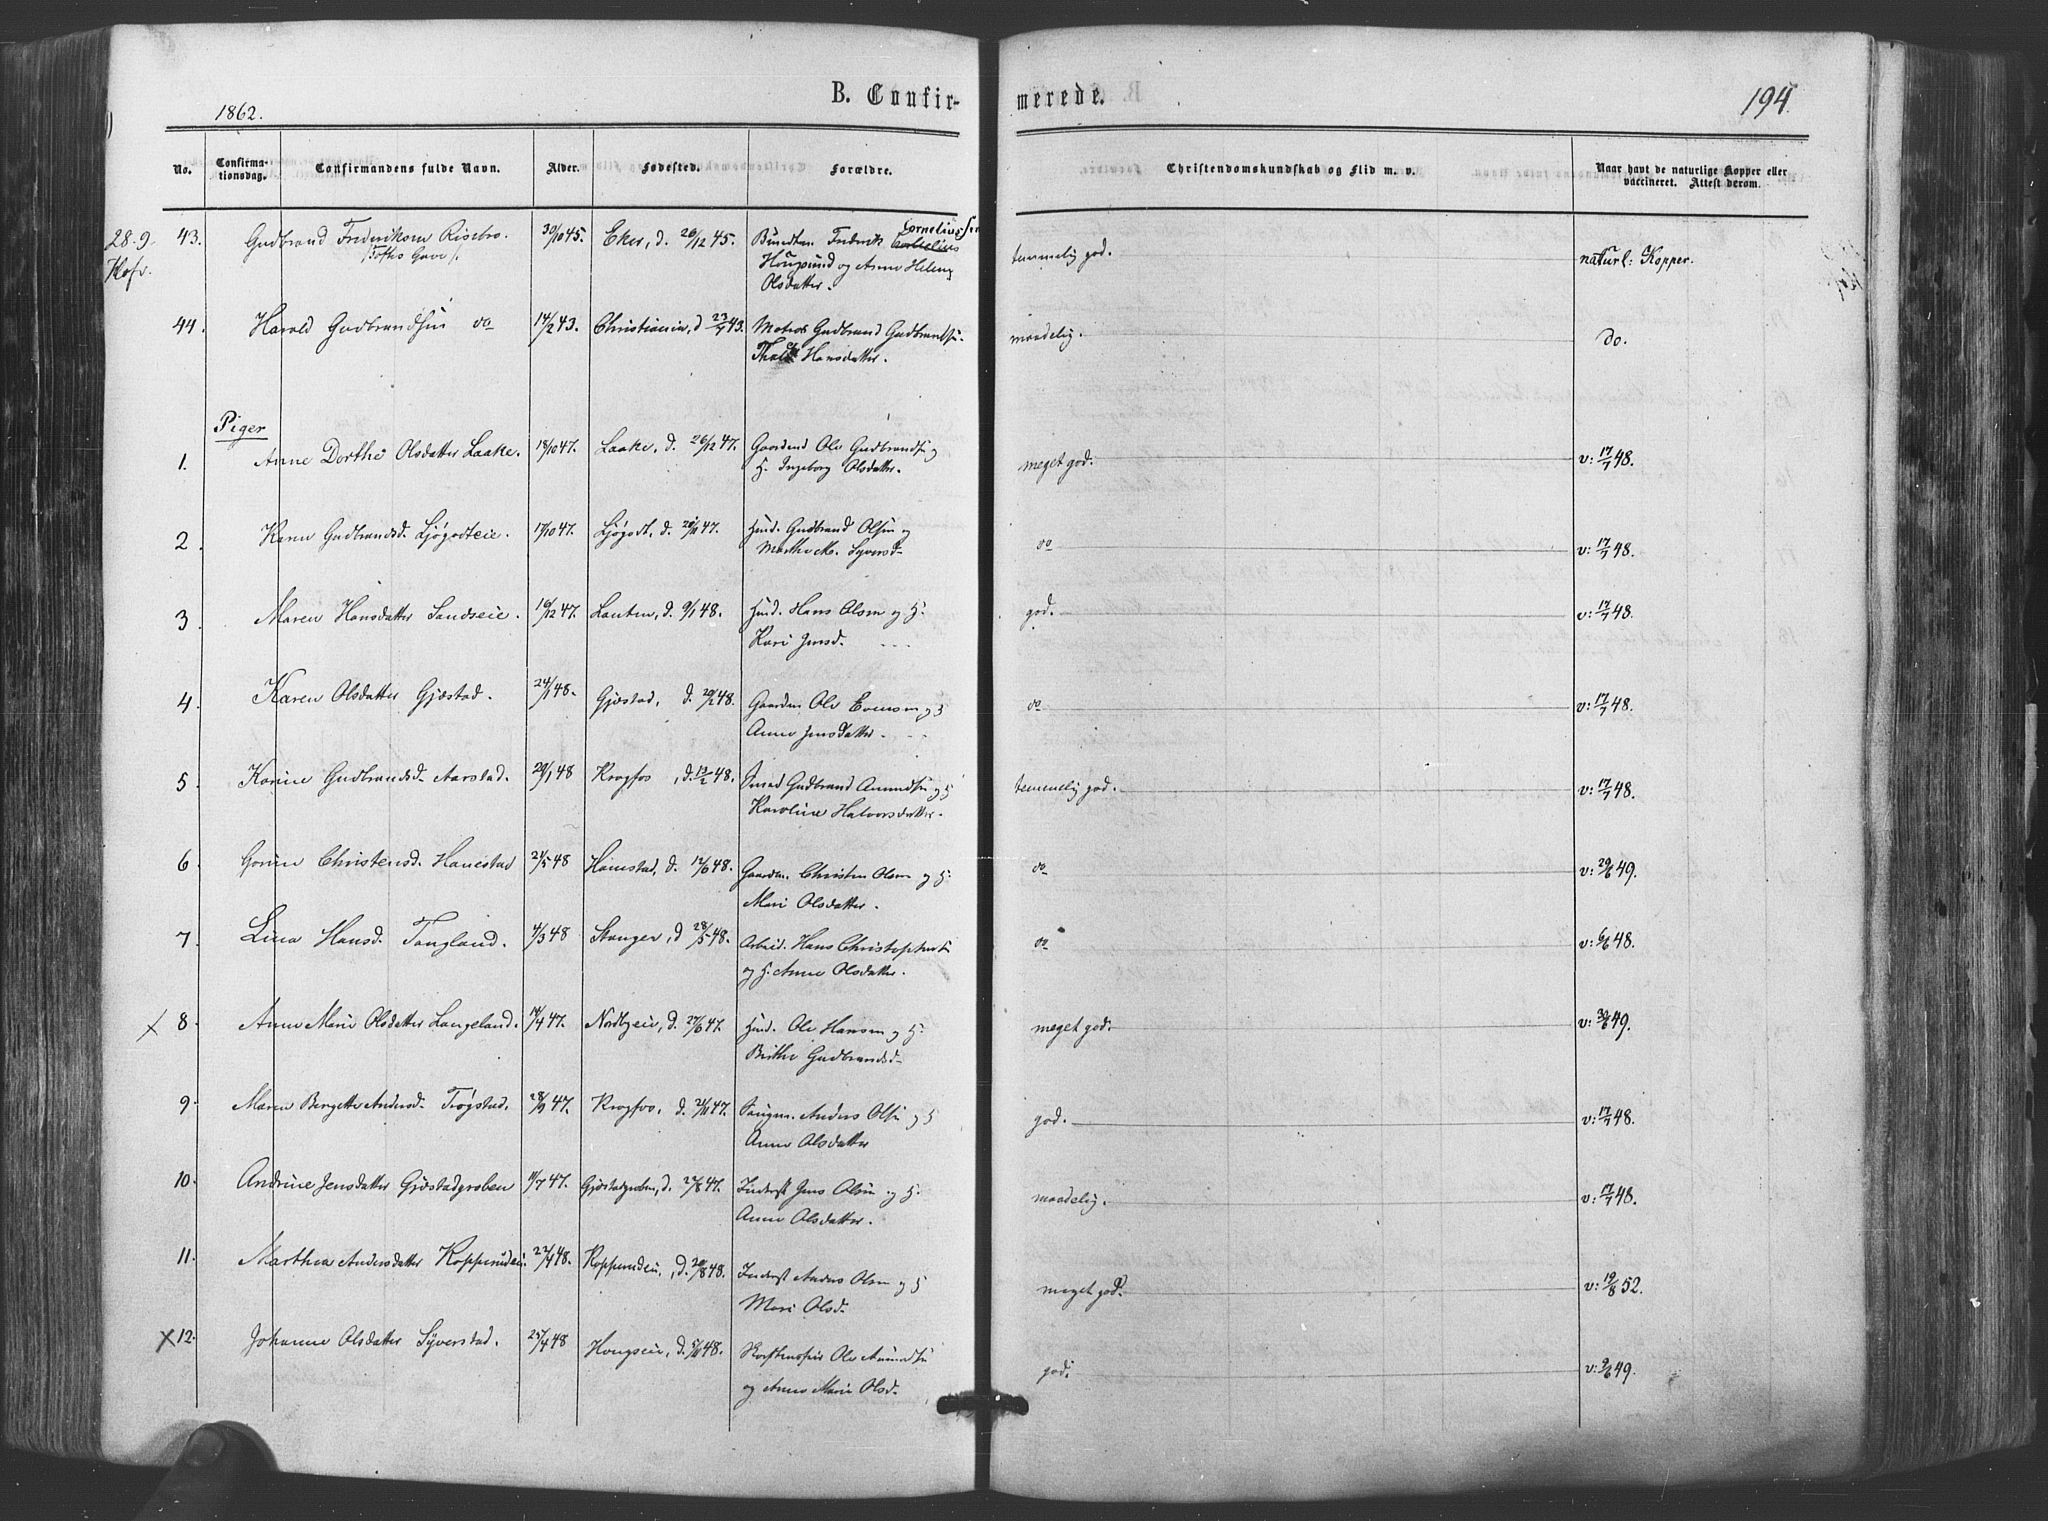 B. Confir-
merede.
194.
1862.
No.
Confirma-
tionsdag.
Confirmandens fulde Navn.
Alder.
Fødested.
Forældre.
Christendomskundskab og Flid m. v.
Naar havt de naturlige Kopper eller
vaccineret. Attest derom.
28-9 43. Gudbrand Frederiksen Risebro. 30/10 45. Eker, d. 26/12 45. Frederik Cornelius Cornelius sen temmelig god. naturl: Kopper.
og Anne Helene
Olsdatter.
44. Harald Gudbrandsen do 14/2 43. Christiania, d 23/7 43. Matros Gudbrand Gudbrandsen. maadelig. do.
Hansdatter.
Piger
1. Anne Dorthe Olsdatter Laake. 18/10 47. Laake, d. 26/12 47. Gaardmd Ole Gudbrandsen og meget god. v: 17/7 48.
H. Ingeborg Olsdatter.
2. Karen Gudbrandsd. Ljøgodteie. 17/10 47. Ljøgodt, d. 47. Husmd. Gudbrand Olsen og do v: 17/7 48.
Marthe M. Syversd.
3. Maren Hansdatter Sandseie. 16/12 47. Lauten, d. 9/1 48. Husmd. Hans Olsen og H. god. v: 17/7 48.
Kari Jensd.
4. Karen Olsdatter Gjæstad. 24/1 48. Gjæstad, d. 20/2 48. Gaardm Ole Evensen og H do v: 17/7 48.
Anne Jensdatter.
5. Karine Gudbrandsd. Aarstad. 29/1 48 Krogfos, d. 13/2 48. Gudbrand Amundsen og H temmelig god. v: 17/7 48.
Karoline Halvorsdatter.
6. Gorine Christensd. Hanestad 21/5 48 Hanestad, d. 12/6 48. Gaardm. Christen Olsen og H. do v: 29/6 49.
Mari Olsdatter.
7. Lina Hansd. Tangland. 4/3 48 Stanger, d 28/5 48. Arbeid. Hans Christophersen do v: 6/6 48.
og H. Anne Olsdatter.
X 8. Anne Marie Olsdatter Langeland. 14/4 47. Nordbyeie, d. 27/6 47. Husmd. Ole Hansen og H. meget god. v: 30/6 49.
Birthe Gudbrandsd.
9. Maren Bergette Andersd. Trøgstad. 28/9 47. Krogfos, d. 21/11 47. Anders Olsen og H god. v: 17/7 48.
Anne Olsdatter
10. Andrine Jensdatter Gjæstadgroben 11/7 47. Gjæstadgroben, d. 27/8 47. Inderst Jens Olsen og H. maadelig. v: 17/7 48.
Anne Olsdatter.
11. Marthea Andersdatter Kopperudeie 22/4 48. Kopperudeie, d. 20/8 48. Inderst Anders Olsen og H meget god. v: 19/8 52.
Mari Olsd.
X 12. Johanne Olsdatter Syverstad. 25/4 48 Hougseie, d. 5/11 48. Ole Amundsen god. v: 9/6 49.
og Anne Marie Olsd.